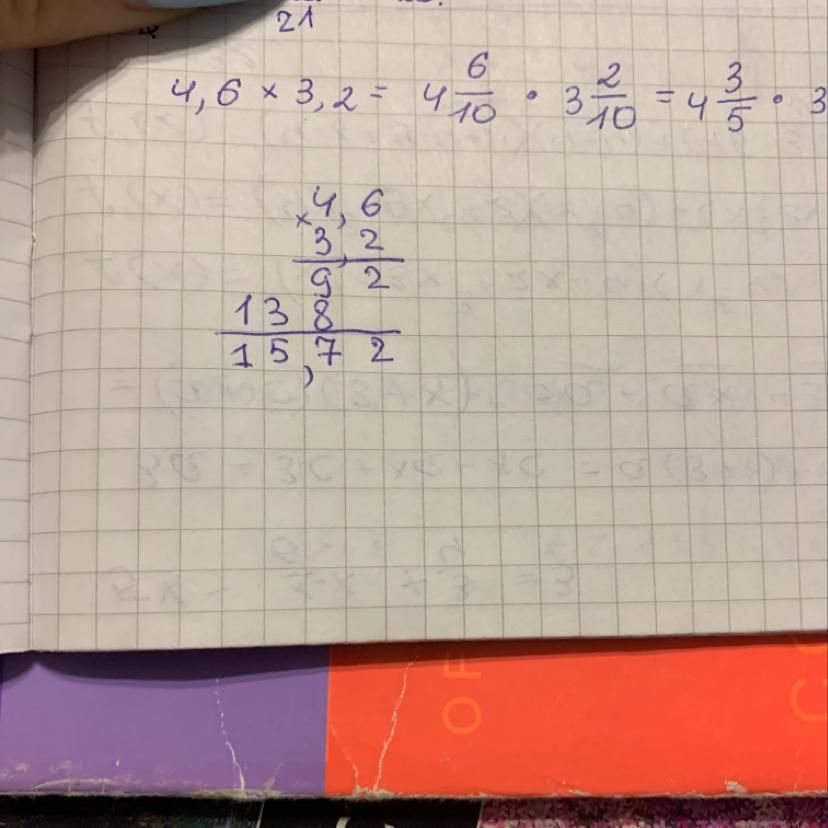 21
4,6 × 3,2 = 4 6/10 · 3 2/10 = 4 3/5 · 3
× 4,6
3,2
9 2
1 3 8
1 5,7 2
OF